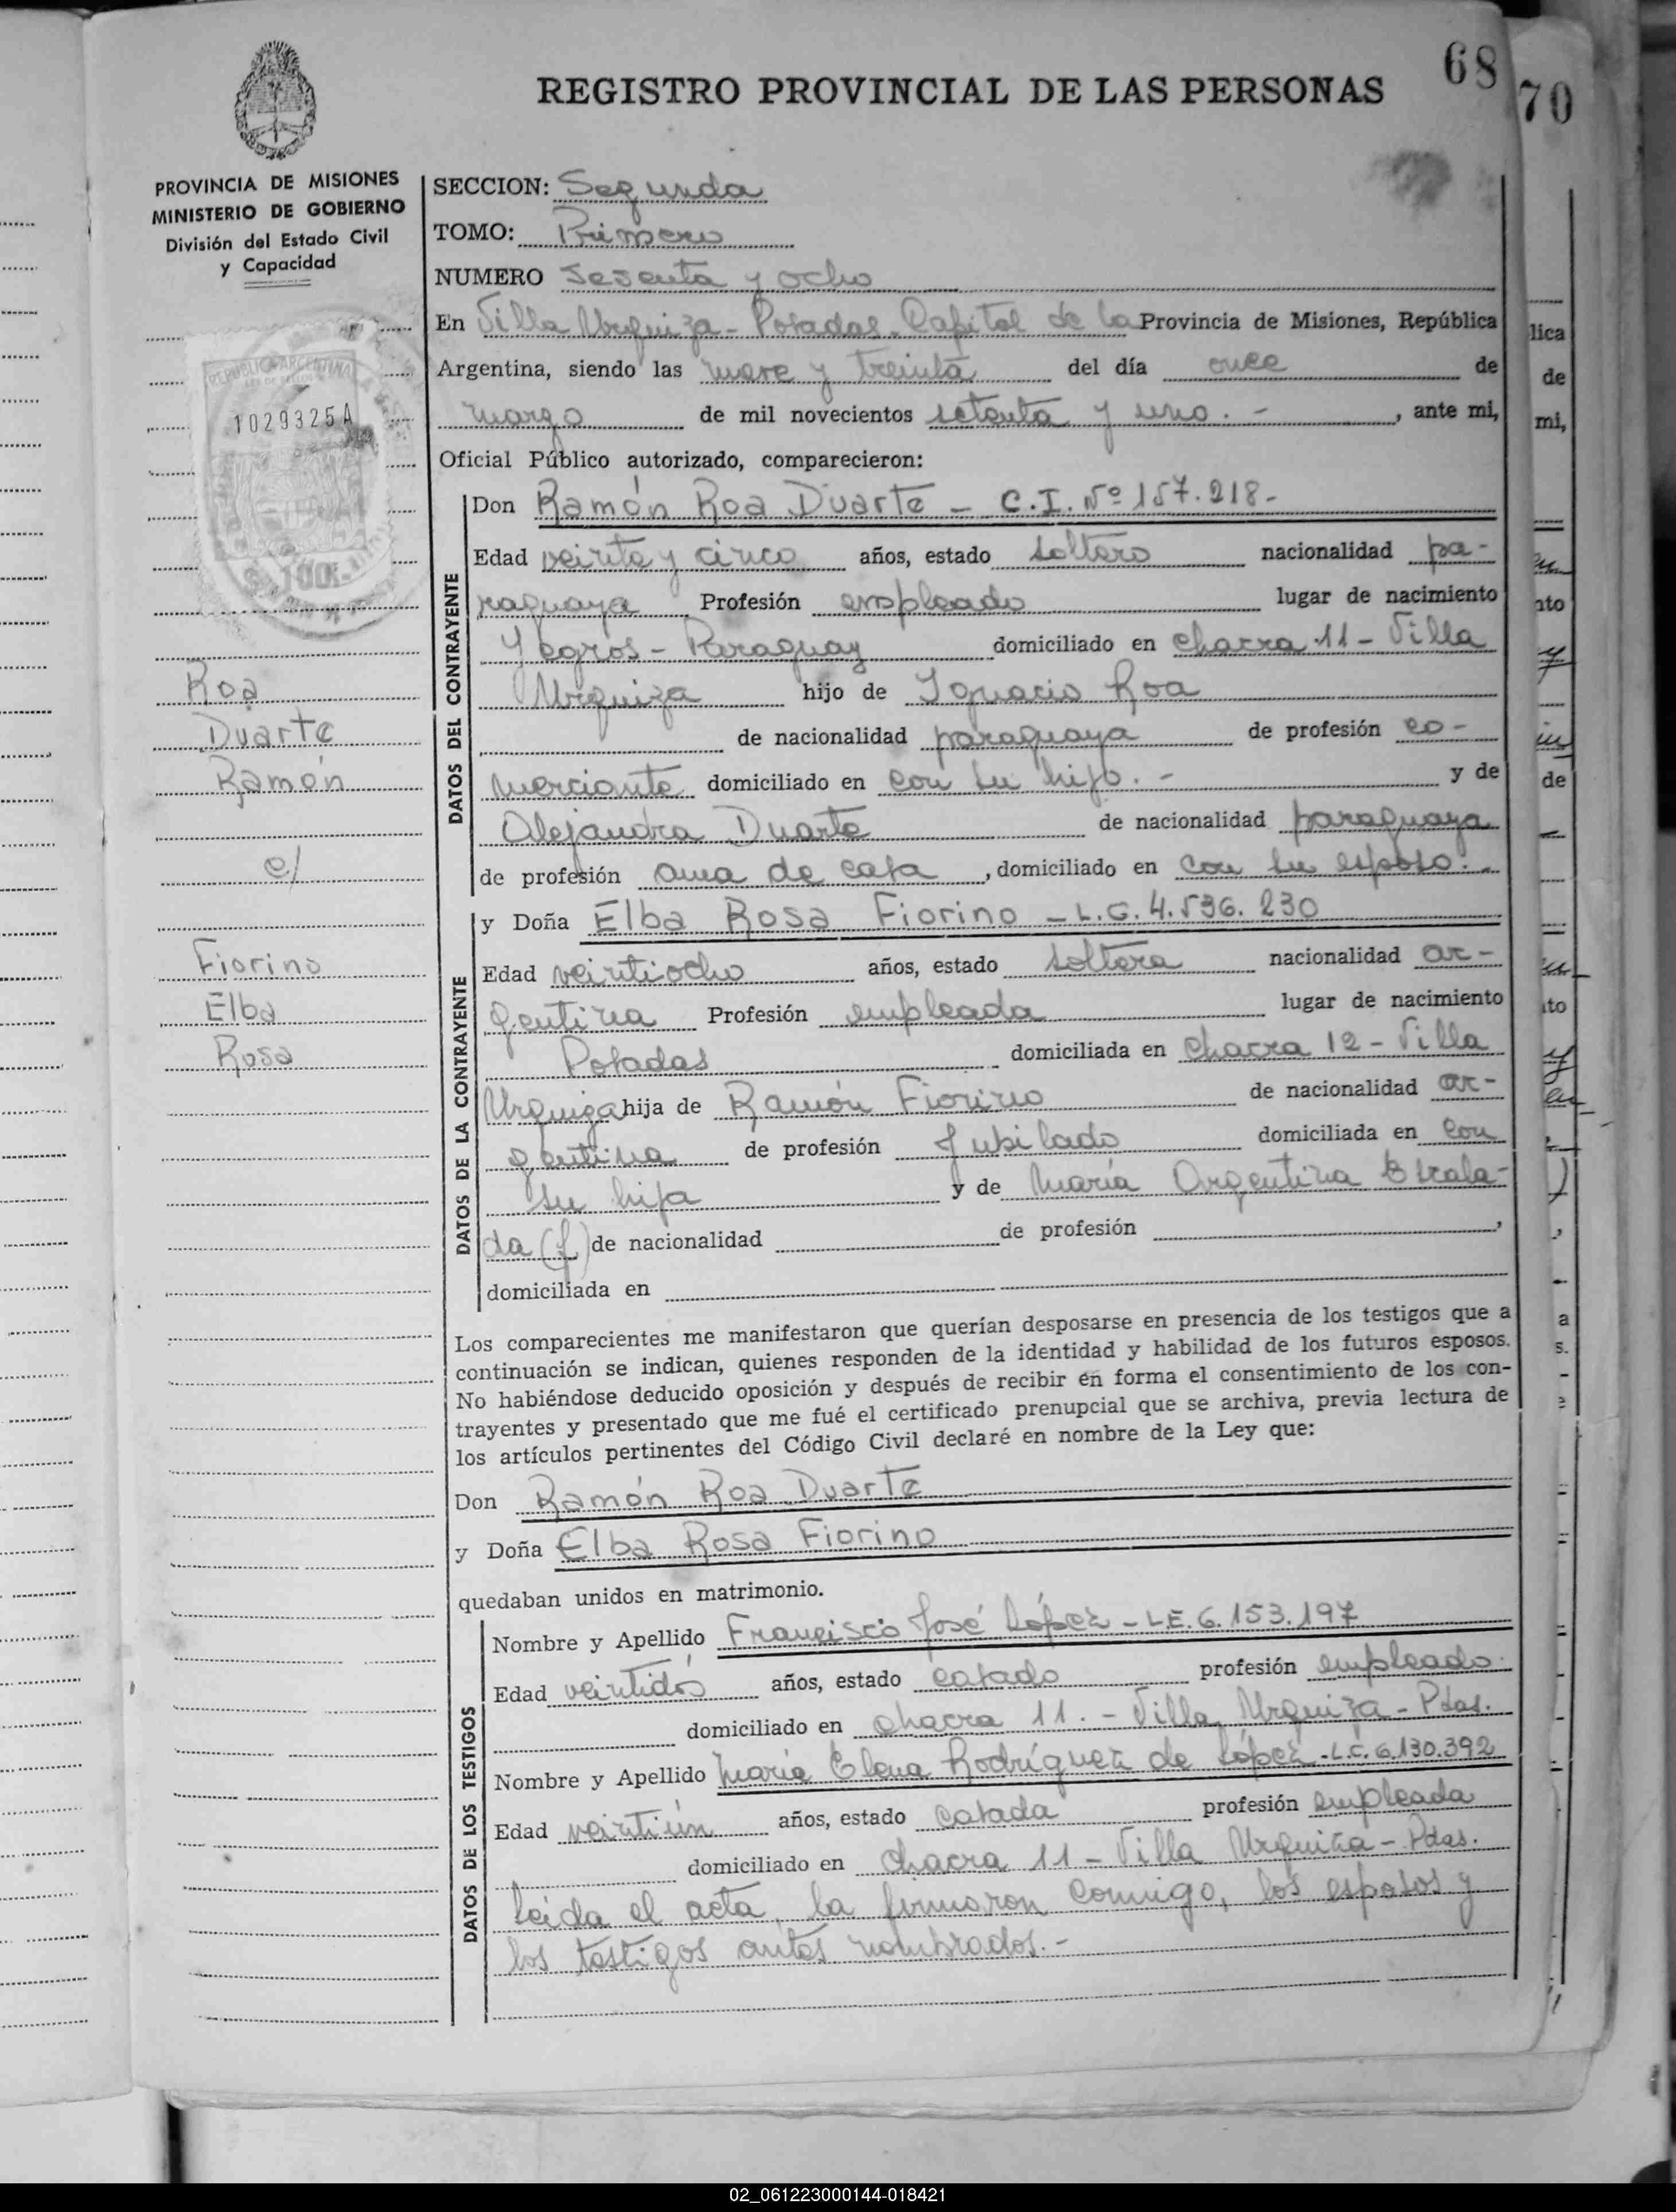 68
70
REGISTRO PROVINCIAL DE LAS PERSONAS
PROVINCIA DE MISIONES
MINISTERIO DE GOBIERNO
División del Estado Civil
y Capacidad
REPUBLICA ARGENTINA
1029325A
Roa
Duarte
Ramón
c/
Fiorino
Elba
Rosa
SECCION: Segunda
TOMO: Primero
NUMERO Sesenta y ocho
En Villa Urquiza - Posadas. Capital de la Provincia de Misiones, República
Argentina, siendo las nueve y treinta del día once de
marzo de mil novecientos setenta y uno. - , ante mi,
Oficial Público autorizado, comparecieron:
DATOS DEL CONTRAYENTE
Don Ramón Roa Duarte - C.I. Nº 157.218-
Edad veinte y cinco años, estado soltero nacionalidad pa-
raguaya Profesión empleado lugar de nacimiento
Yegros - Paraguay domiciliado en chacra 11 - Villa
Urquiza hijo de Ignacio Roa
de nacionalidad paraguaya de profesión co-
merciante domiciliado en con su hijo. - y de
Alejandra Duarte de nacionalidad paraguaya
de profesión ama de casa , domiciliado en con su esposo. -
DATOS DE LA CONTRAYENTE
y Doña Elba Rosa Fiorino - L.C. 4.536.230
Edad veintiocho años, estado soltera nacionalidad ar-
gentina Profesión empleada lugar de nacimiento
Posadas domiciliada en chacra 12 - Villa
Urquiza hija de Ramón Fiorino de nacionalidad ar-
gentina de profesión Jubilado domiciliada en con
su hija y de María Argentina Escala-
da (f) de nacionalidad de profesión ,
domiciliada en
Los comparecientes me manifestaron que querían desposarse en presencia de los testigos que a
continuación se indican, quienes responden de la identidad y habilidad de los futuros esposos.
No habiéndose deducido oposición y después de recibir en forma el consentimiento de los con-
trayentes y presentado que me fué el certificado prenupcial que se archiva, previa lectura de
los artículos pertinentes del Código Civil declaré en nombre de la Ley que:
Don Ramón Roa Duarte
y Doña Elba Rosa Fiorino
quedaban unidos en matrimonio.
DATOS DE LOS TESTIGOS
Nombre y Apellido Francisco José López - L.E. 6.153.197
Edad veintidós años, estado casado profesión empleado.
domiciliado en chacra 11. - Villa Urquiza - Pdas.
Nombre y Apellido María Elena Rodríguez de López - L.C. 6.130.392
Edad veintiún años, estado casada profesión empleada
domiciliado en chacra 11 - Villa Urquiza - Pdas.
Leída el acta, la firmaron conmigo, los esposos y
los testigos antes nombrados. -
lica
de
mi,
nto
de
ito
a
s.
02_061223000144-018421